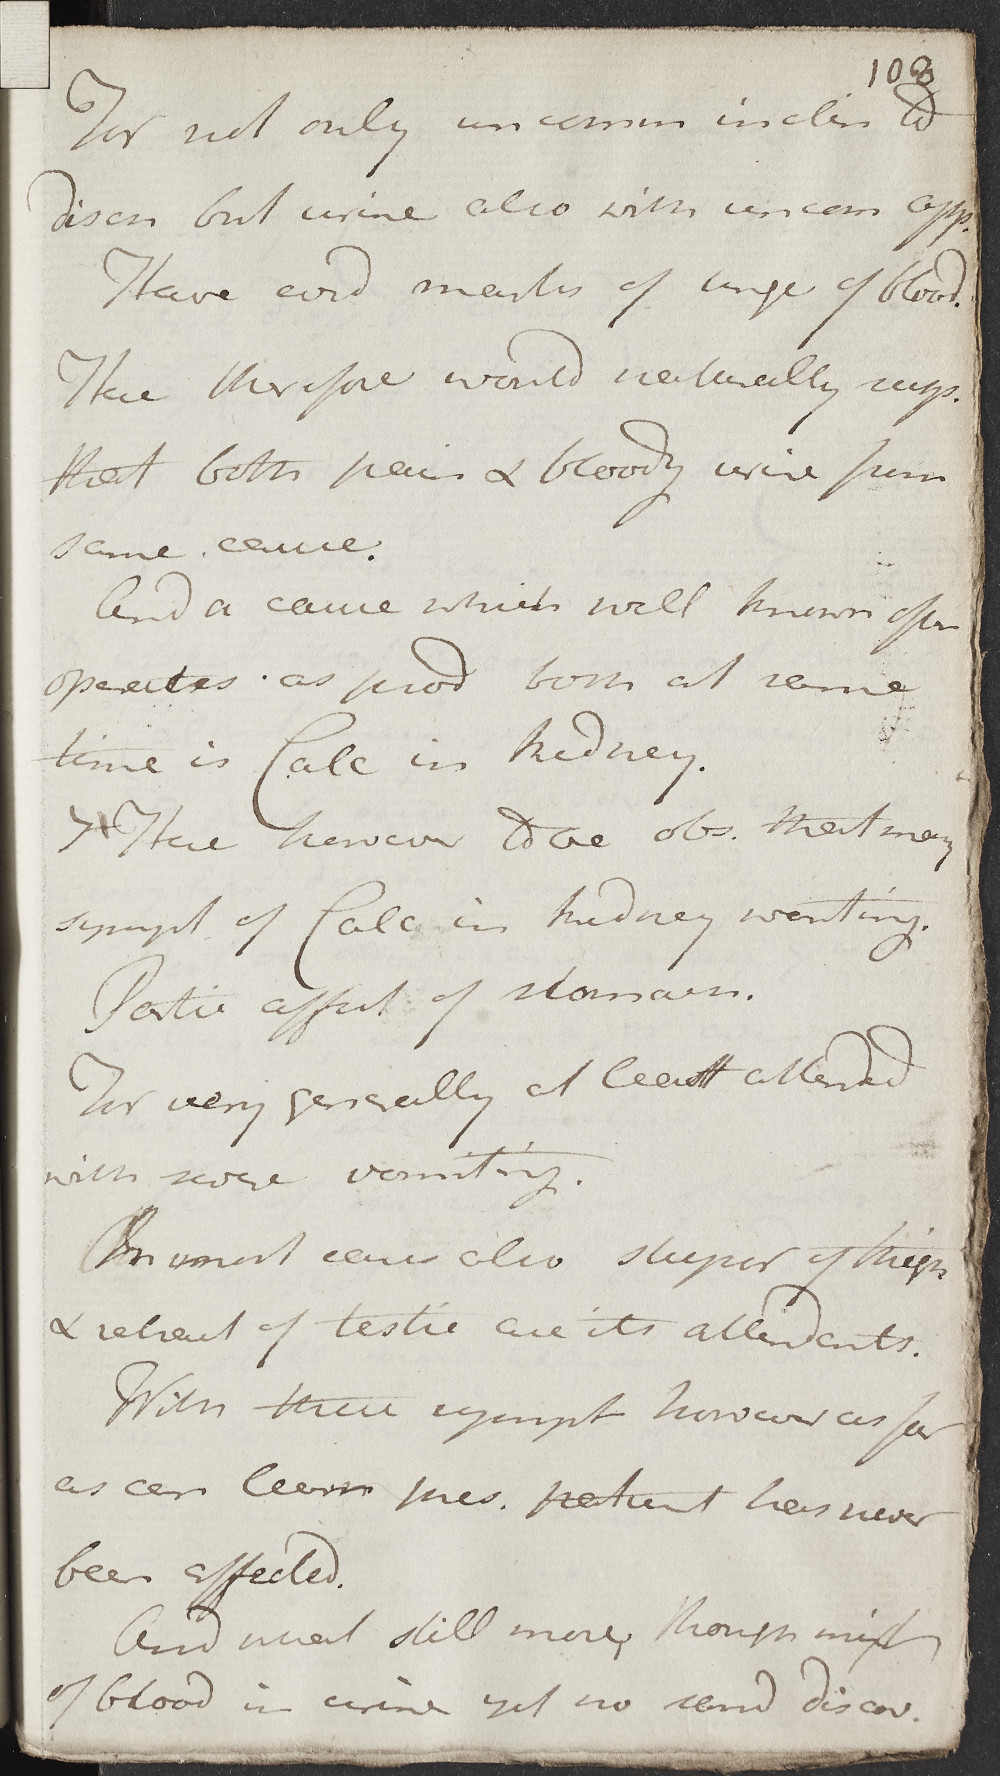 103
For not only uncomm inclin to
disch but urine also with uncom app.
Have evid marks of tinge of blood.
Hae therefore would naturally supp.
that both pain & bloody urine from
same cause.
And a cause which well known often
operates as prod both at same
time is Calc in kidney.
Hae however to be obs. that many
sympt of Calc in kidney wanting.
Partic affect of stomach.
For very generally at least attended
with severe vomiting.
In most cases also stupor of thigh
& retract of testic are its attendants.
With these sympt however as far
as can learn pres. patient has never
been affected.
And what still more, though mixt
of blood in urine yet no sand discov.